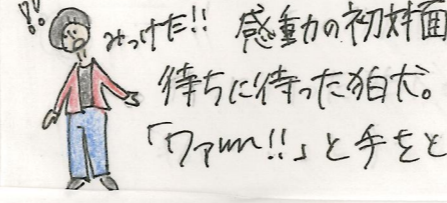 !!
みっけた!! 感動の初対面
待ちに待った狛犬。
「ワァ〜〜!!」と手をと